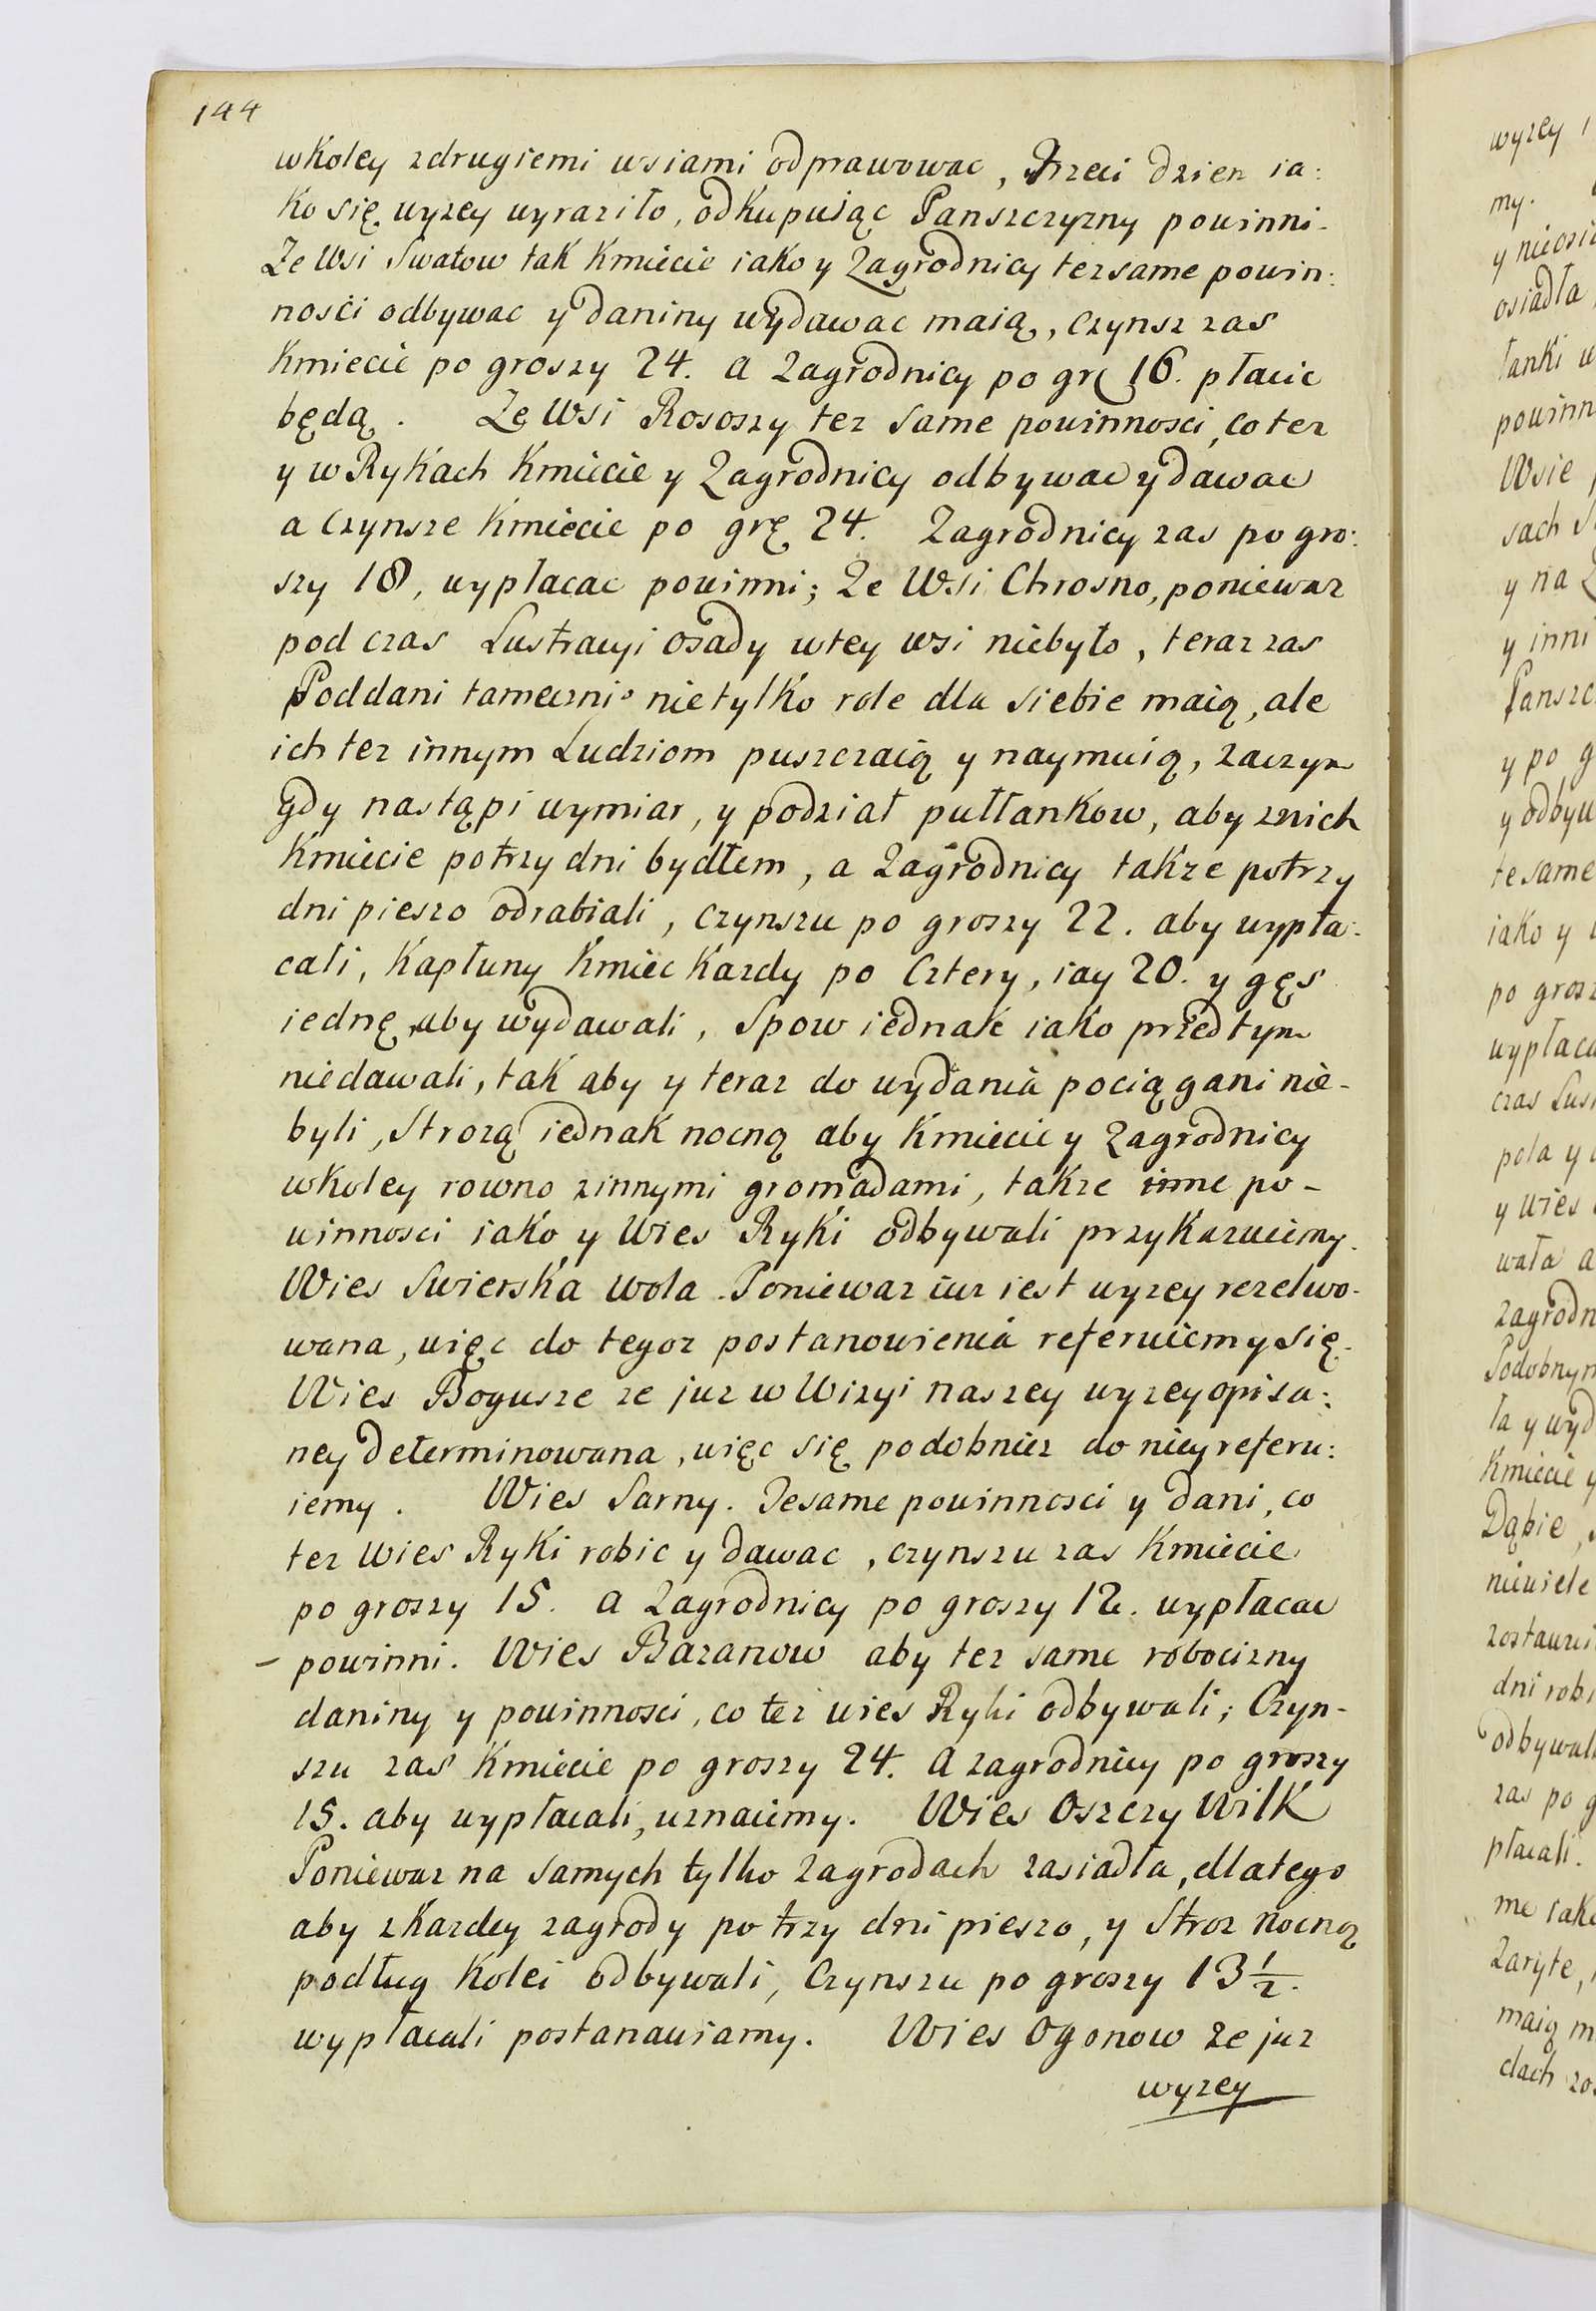 144
wkoley zdrugiemi wsiami odprawowac, Trzeci dzien ia:
ko się wyzey wyraziło, odkupuiąc Panszczyzny powinni.
Ze Wsi Swatow tak Kmiecie iako y Zagrodnicy tezsame powin:
nosci odbywac y daniny wydawac maią, czynsz zas
Kmiecie po groszy 24. a Zagrodnicy po gr 16. płacic
będą. Ze Wsi Rososzy tez same powinnosci, co tez
y w Rykach Kmiecie y Zagrodnicy odbywac y dawac
a Czynsze Kmiecie po grę 24. Zagrodnicy zas po gro:
szy 18, wypłacac powinni; Ze Wsi Chrosno, poniewaz
pod czas Lustracyi osady wtey wsi niebyło, teraz zas
Poddani tameczni nietylko role dla siebie maią, ale
ich tez innym Ludziom puszczaią y naymuią, zaczym
gdy nastąpi wymiar, y podział pułłankow, aby znich
Kmiecie potrzy dni bydłem, a Zagrodnicy takze potrzy
dni pieszo odrabiali, czynszu po groszy 22. aby wypła:
cali, Kapłuny Kmiec Kazdy po Cztery, iay 20. y gęs
iednę aby wydawali, Spow iednak iako przedtym
niedawali, tak aby y teraz do wydania pociągani nie-
byli, Strozą iednak nocną aby Kmiecie y Zagrodnicy
wkoley rowno zinnymi gromadami, takze inne po-
winnosci iako y Wies Ryki odbywali przykazuiemy.
Wies Swierska Wola. Poniewaz iuz iest wyzey rezelwo-
wana, więc do tegoz postanowienia referuiemy się.
Wies Bogusze ze juz w Wizyi naszey wyzey opisa:
ney determinowana, więc się podobniez do niey referu:
iemy. Wies Sarny. Tesame powinnosci y dani, co
tez Wies Ryki robic y dawac, czynszu zas Kmiecie
po groszy 15. a Zagrodnicy po groszy 12. wypłacac
- powinni. Wies Bazanow aby tez same robocizny
daniny y powinnosci, co tez wies Ryki odbywali; Czyn-
szu zas Kmiecie po groszy 24. a zagrodnicy po groszy
15. aby wypłacali, uznaiemy. Wies Oszczy Wilk
Poniewaz na samych tylko Zagrodach zasiadła, dlatego
aby zkazdey zagrody po trzy dni pieszo, y Stroz nocną
podług Kolei odbywali, Czynszu po groszy 13 1/2.
wypłacali postanawiamy. Wies Ogonow ze juz
wyzey
wyzey
my.
osiadła
łanki
Wsie
sach
y na
y inni
y po
tesame
iako y
wypłaca
pola y
y wies
wała a
ła y wyd
Kmiecie y
Dąbie,
niewiele
dni robi
odbywal
zas po g
płacali.
me iako
Zaryte,
maią m